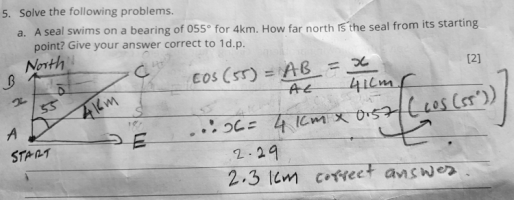 5. Solve the following problems.
a. A seal swims on a bearing of 055° for 4km. How far north is the seal from its starting
point? Give your answer correct to 1d.p.
[2]
North
B
C
x
55
4km
A
E
START
cos (55) = AB/AC = x/4km
∴ x = 4 km x 0.57 (cos(55°))
2.29
2.3 km correct answer.